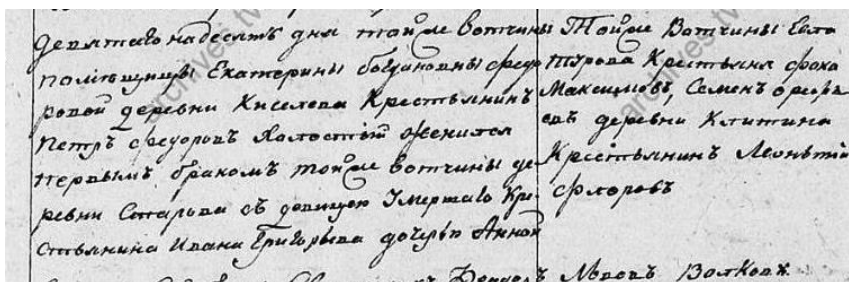 Девятаго надесять дня тойже вотчины
помѣщицы Екатерины богдановны федо
ровой деревни Киселева Крестьянинъ
Петръ федоровъ Холостый женился
первымъ бракомъ тойже вотчины де
ревни Старова съ девицею Умершаго Кре
стьянина Ивана Григорьева дочерью Анной
Тойже Вотчины
Крестьяня фока
Максимовъ, Семенъ
евъ деревни Клитина
Крестьянинъ Леонътий
флоровъ
Волковъ
archives.tv
archives.tv